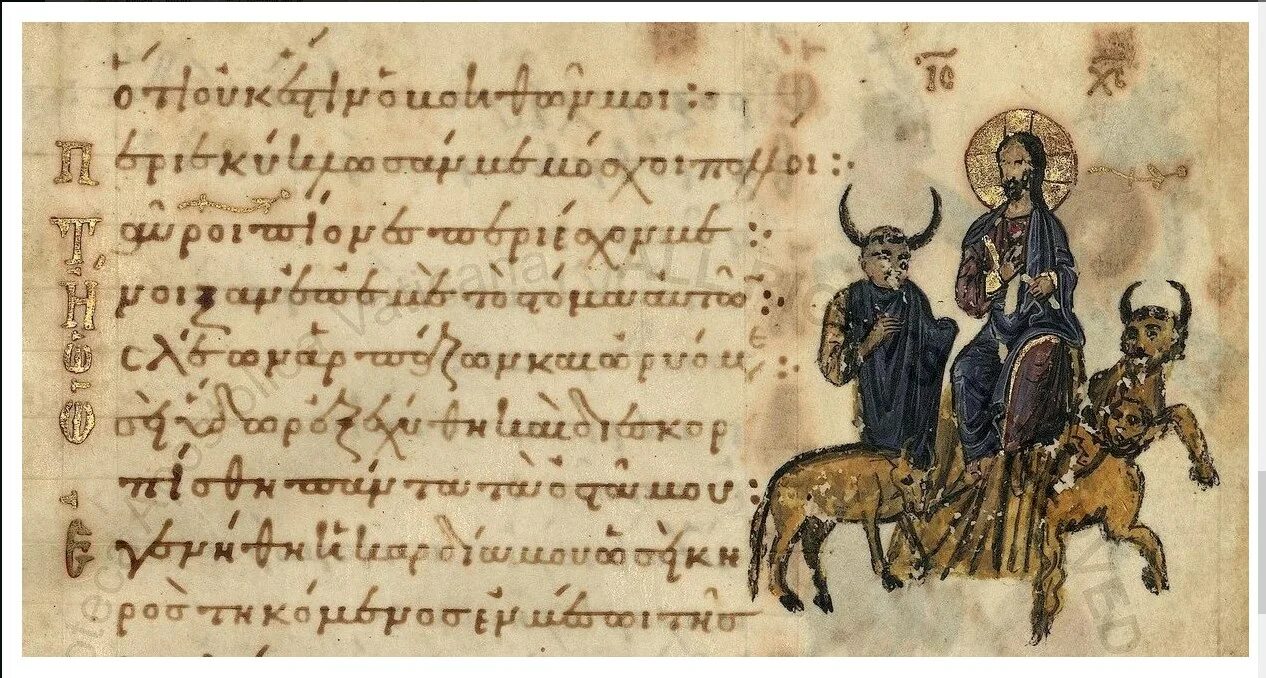 ὅτι οὐκ ἔστιν ὁ βοηθῶν μοι :
Περιεκύκλωσάν με μόσχοι πολλοί :
Ταῦροι πίονες περιέσχον με :
Ἤνοιξαν ἐπ' ἐμὲ τὸ στόμα αὐτῶν :
Ὡς λέων ἁρπάζων καὶ ὠρυόμε :
Ὡσεὶ ὕδωρ ἐξεχύθη καὶ διεσκορ
πίσθη πάντα τὰ ὀστᾶ μου :
Ἐγενήθη ἡ καρδία μου ὡσεὶ κη
ρὸς τηκόμενος ἐν μέσωι τῆς
ΙC ΧC
Apostolica Vaticana